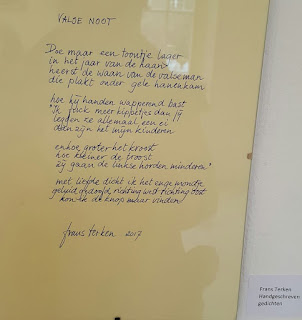 VALSE NOOT
Doe maar een toontje lager
in het jaar van de haan
heerst de waan van de valse man
die plakt onder gele hanenkam
hoe hij handen wapperend bast
"ik fok meer kippetjes dan jij
legden ze allemaal een ei
dan zijn het mijn kinderen
en hoe groter het kroost
hoe kleiner de troost
zij gaan de linkse horden minderen"
met liefde dicht ik het enge mondje
geluid richting west richting oost
kon ik de knop maar vinden
frans terken 2017
Frans Terken
Handgeschreven
gedichten